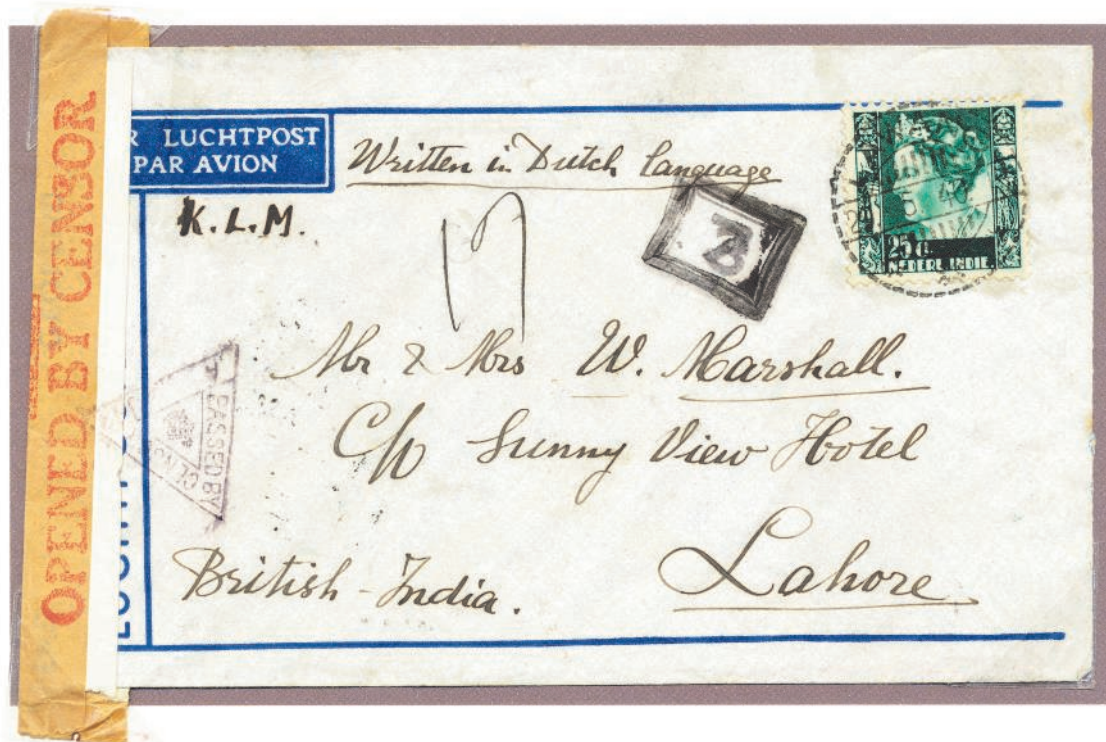 OPENED BY CENSOR
R LUCHTPOST
PAR AVION
Written in Dutch language
K.L.M.
25 c
NEDERL. INDIE
Mr & Mrs W. Marshall.
PASSED BY
C/o Sunny View Hotel
Lahore
British-India.